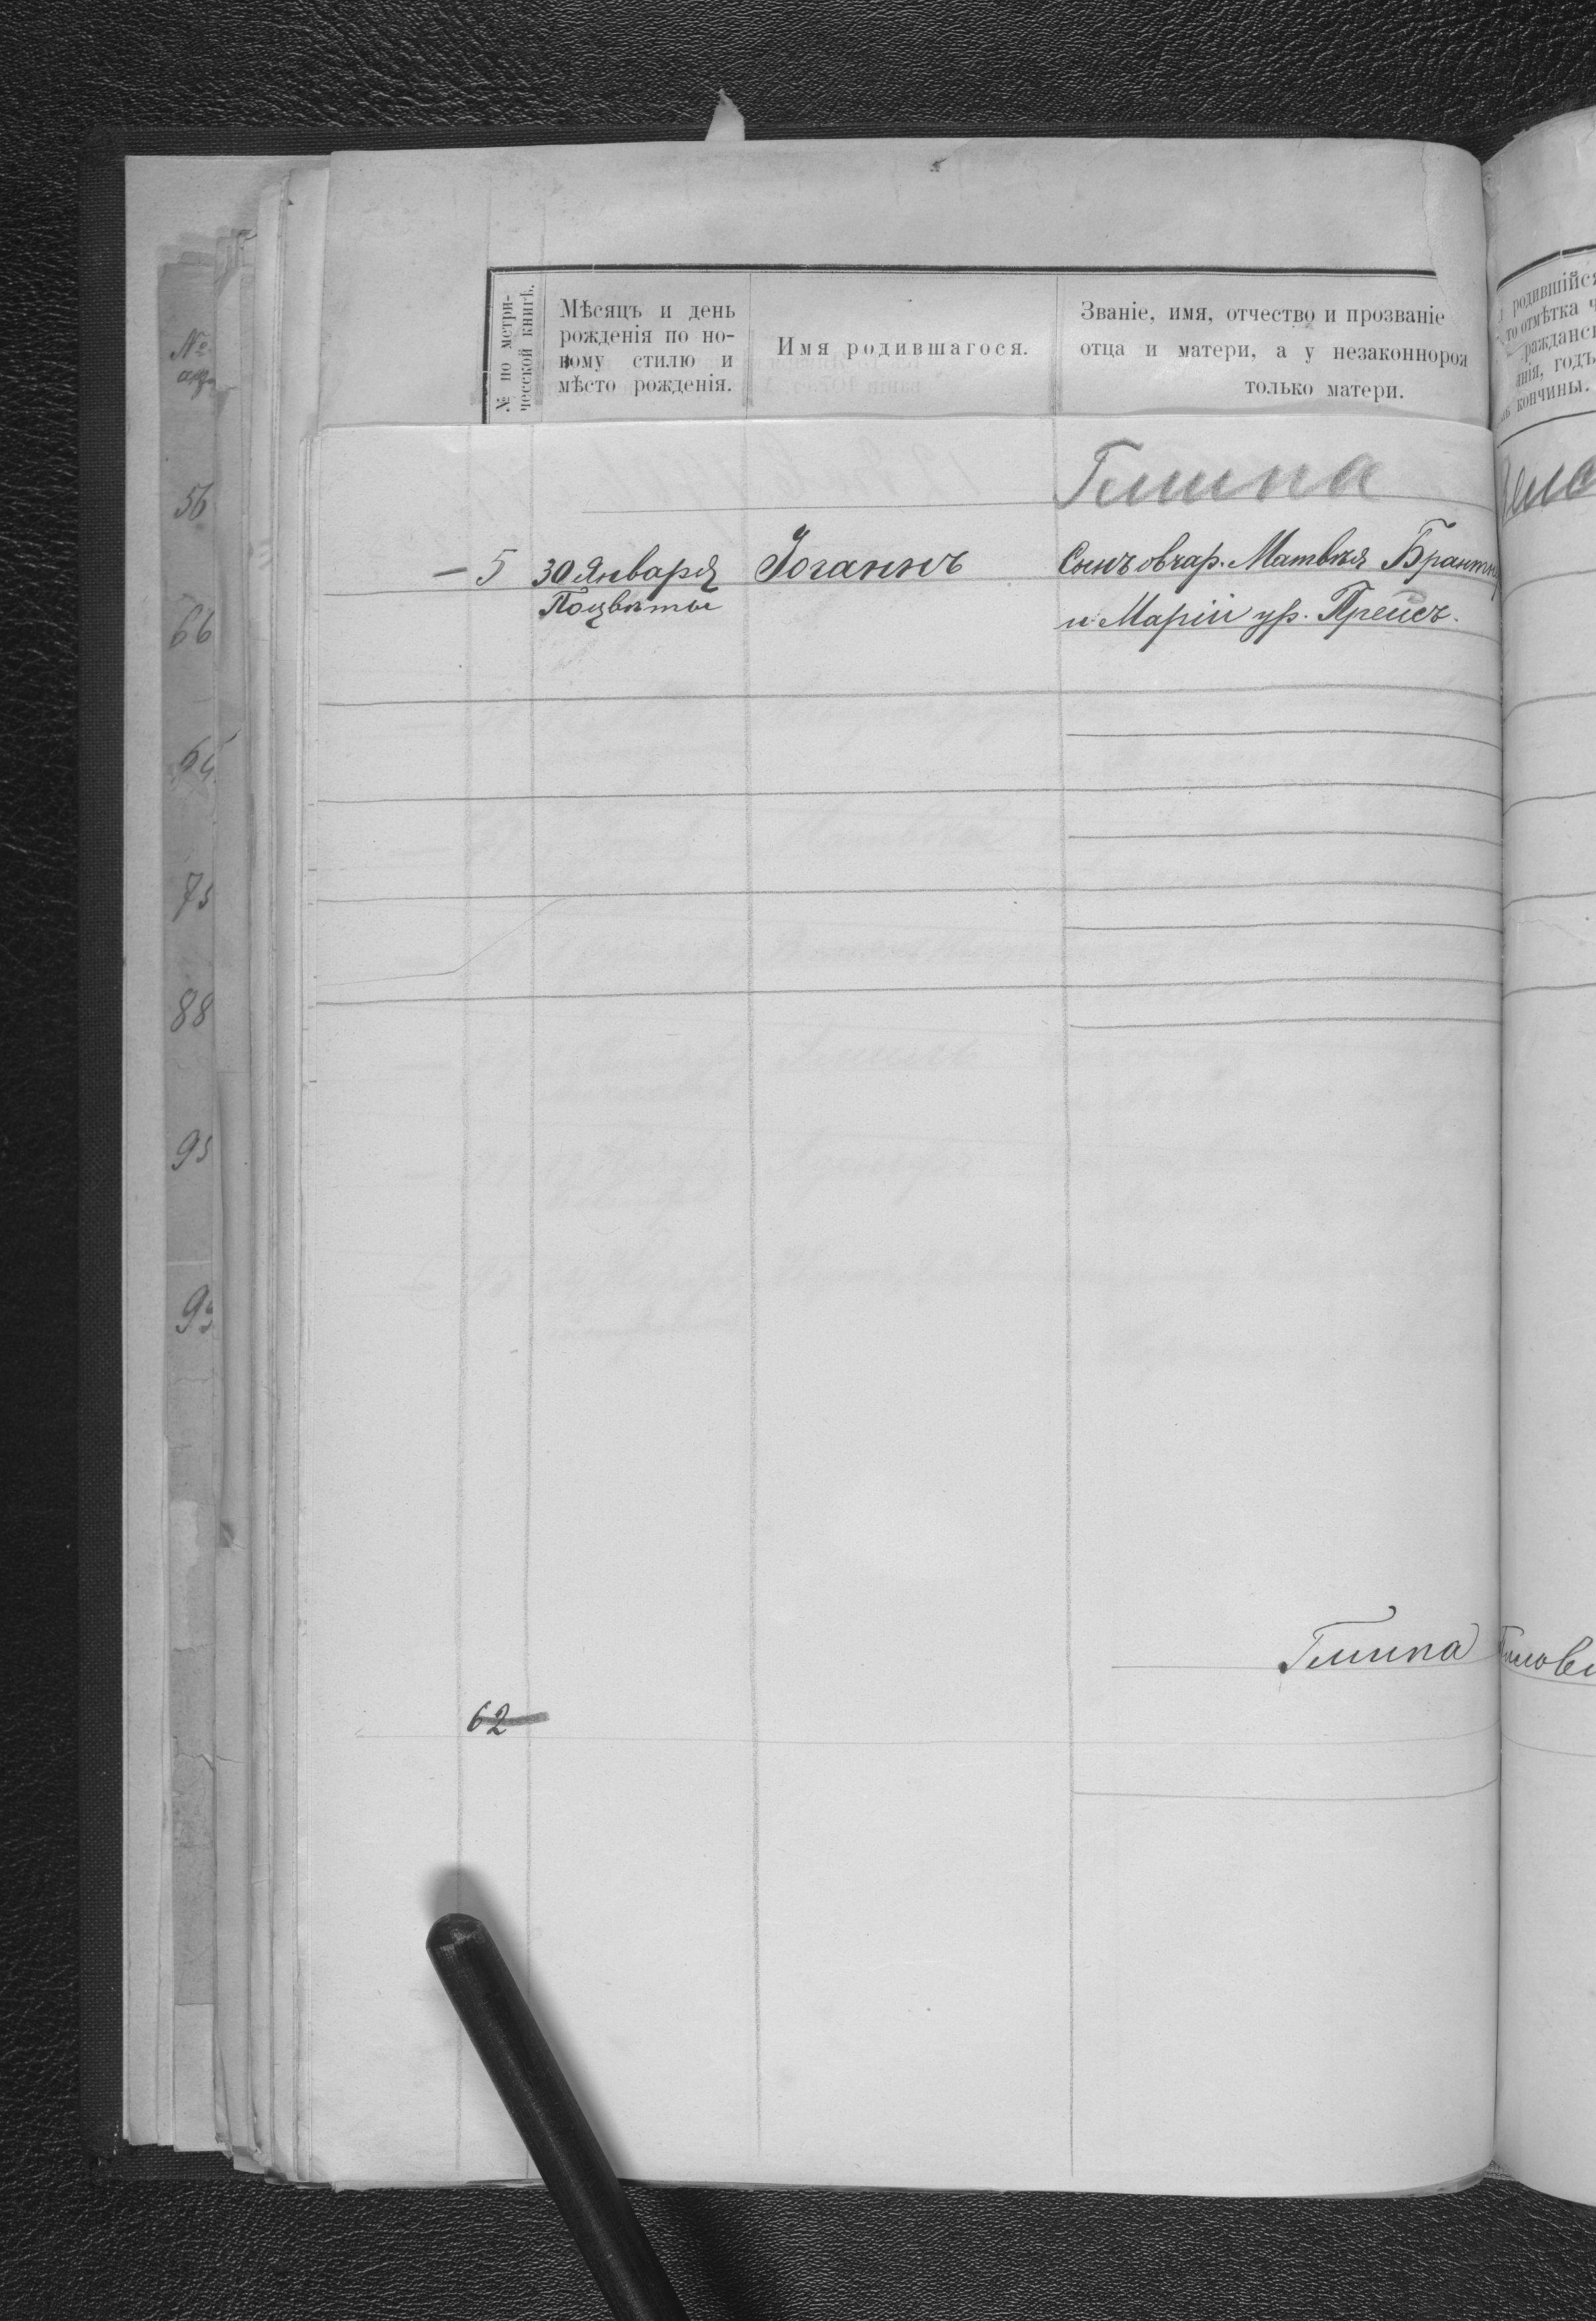 № по метри-
ческой книгѣ.
Мѣсяцъ и день
рожденія по но-
вому стилю и
мѣсто рожденія.
Имя родившагося.
Званіе, имя, отчество и прозваніе
отца и матери, а у незаконнорож
только матери.
родившійся
то отмѣтка ч
ражданск
нія, годъ
кончины.
№
56
66
75
88
95
Гмина
– 5 30 Января Іоганнъ Сынъ овчар. Матвѣя Брантн
Поцвѣты и Маріи ур. Прейсъ.
Гмина
62